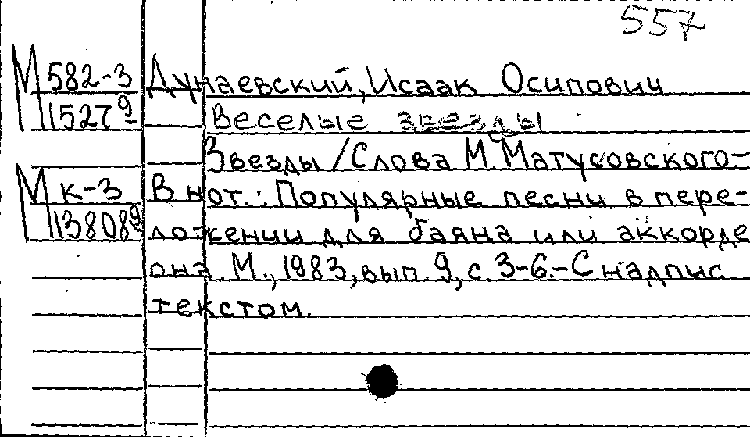 557
М 582-3 Дунаевский, Исаак Осипович
15279 Веселые звезды
Звезды / Слова М. Матусовского-
М к-3 В нот.: Популярные песни в пере-
138089 ложении для баяна или аккорде
она. М., 1983, вып. 9, с. 3-6.-С надпис.
текстом.